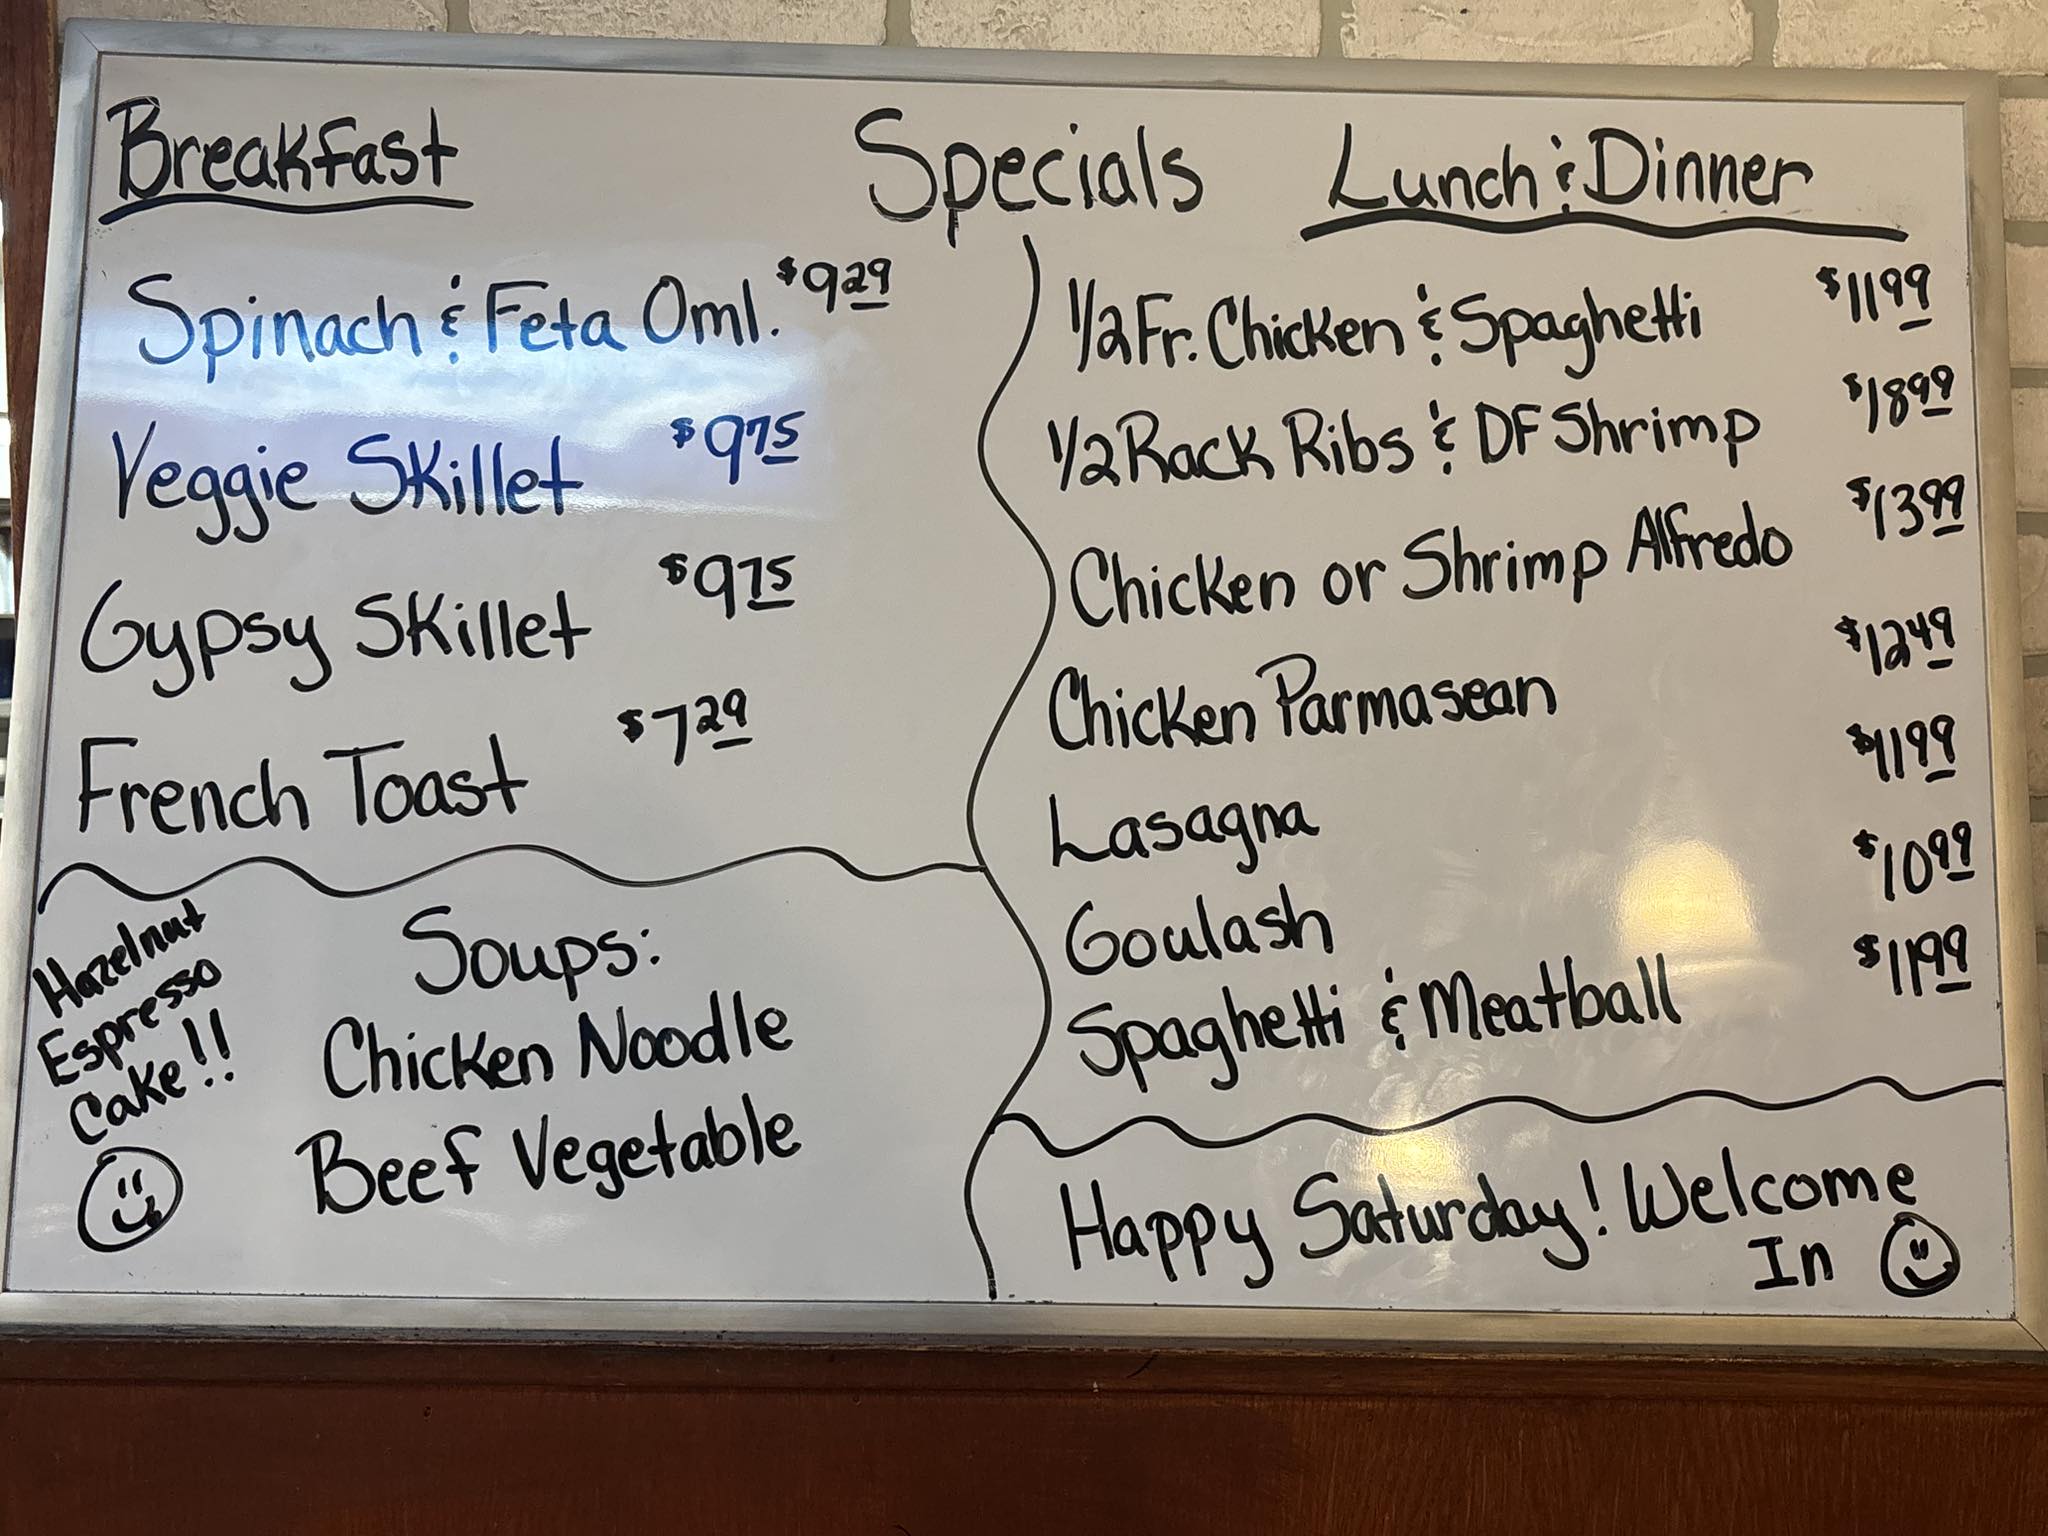 Breakfast
Specials
Lunch & Dinner
Spinach & Feta Oml. $9.29
Veggie Skillet $9.75
Gypsy Skillet $9.75
French Toast $7.29
Hazelnut
Espresso
Cake!!
Soups:
Chicken Noodle
Beef Vegetable
1/2 Fr. Chicken & Spaghetti $11.99
1/2 Rack Ribs & DF Shrimp $18.99
Chicken or Shrimp Alfredo $13.99
Chicken Parmasean $12.49
Lasagna $11.99
Goulash $10.99
Spaghetti & Meatball $11.99
Happy Saturday! Welcome
In